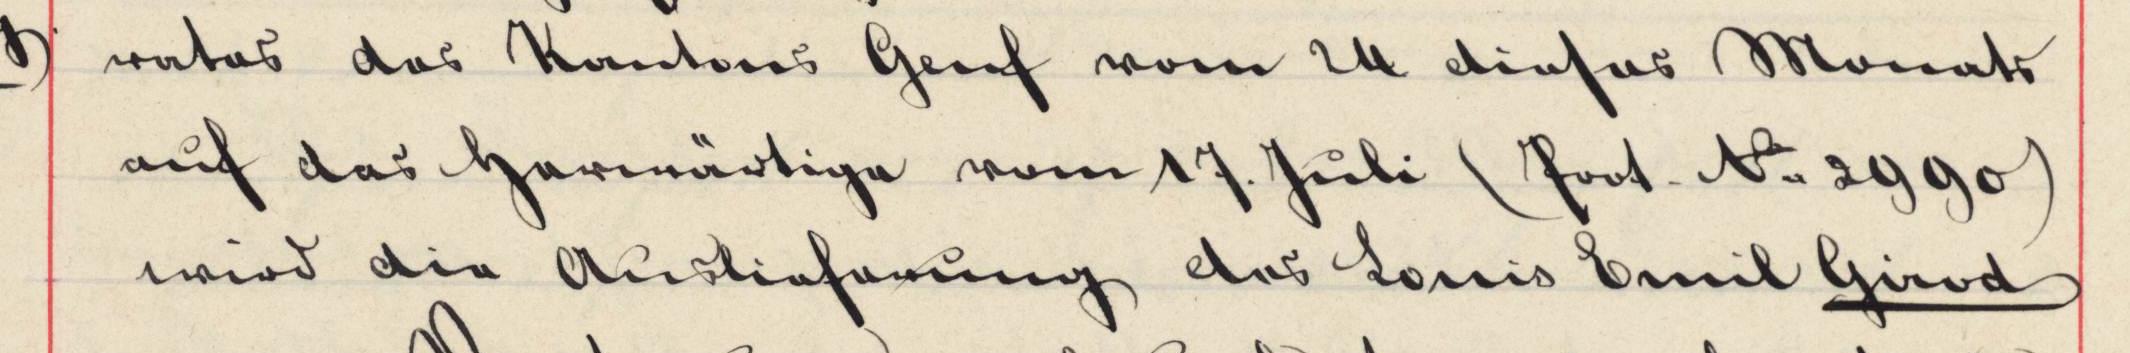 rates des Kantons Genf vom 24 dieses Monats
auf das herwärtige vom 17. Juli (Prot. No. 2990)
wird die Auslieferung des Louis Emil Girod